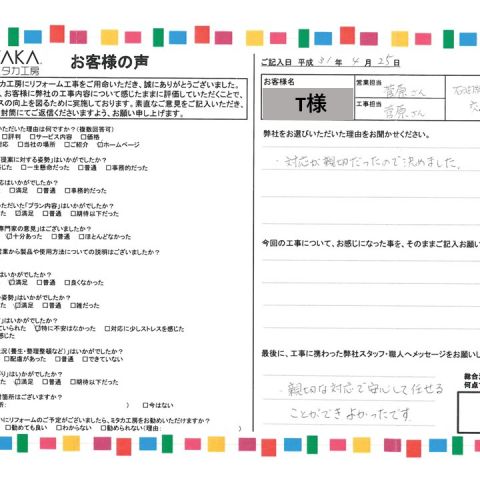 TAKA.
タカ工房
お客様の声
タカ工房にリフォーム工事をご用命いただき、誠にありがとうございました。
、お客様に弊社の工事内容について感じたままに評価していただくことで、
スの向上を図るために実施しております。素直なご意見をご記入いただき、
封筒にてご返信くださいますよう、お願い申し上げます。
いただいた理由は何ですか?(複数回答可)
□評判 □サービス内容 □価格
対応 □当社の場所 □ご紹介 ☑ホームページ
「提案に対する姿勢」はいかがでしたか?
に感じた □一生懸命だった □普通 □事務的だった
応はいかがでしたか?
☑満足 □普通 □事務的だった
いただいた「プラン内容」はいかがでしたか?
た ☑満足 □普通 □期待以下だった
専門家の意見」はございましたか?
☑十分あった □普通 □ほとんどなかった
営業から製品や使用方法についての説明はございましたか?
はいかがでしたか?
☑満足 □普通 □良くなかった
姿勢」はいかがでしたか?
☑満足 □普通 □雑だった
」はいかがでしたか?
ていられた ☑特に不安はなかった □対応に少しストレスを感じた
じた
状況(養生・整理整頓など)」はいかがでしたか?
□配慮があった □普通 □できていない
がり」はいかがでしたか?
た ☑満足 □普通 □期待以下だった
箇所はございますか?
所: ) □今はない
いにリフォームのご予定がございましたら、ミタカ工房をお勧めいただけますか?
□勧めても良い □わからない □勧められない(理由: )
ご記入日 平成 31 年 4 月 25 日
お客様名
T様
営業担当
菅原さん
工事担当
菅原さん
弊社をお選びいただいた理由をお聞かせください。
・対応が親切だったので決めました。
今回の工事について、お感じになった事を、そのままご記入お願い
最後に、工事に携わった弊社スタッフ・職人へメッセージをお願いし
・親切な対応で安心して任せる
ことができよかったです。
総合
何点